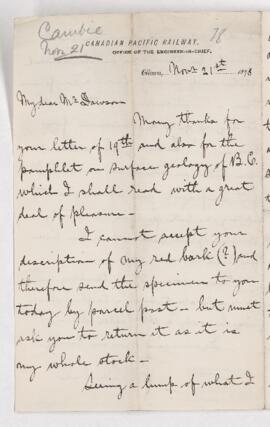 Cambie
Nov. 21
78
CANADIAN PACIFIC RAILWAY.
OFFICE OF THE ENGINEER-IN-CHIEF.
Ottawa, Novr 21st 1878
My dear Mr Dawson
Many thanks for
your letter of 19th and also for the
pamphlet on surface geology of B.C.
which I shall read with a great
deal of pleasure -
I cannot accept your
description of my red bark (?) and
therefore send the specimen to you
today by parcel post - but must
ask you to return it as it is
my whole stock -
Seeing a lump of what I